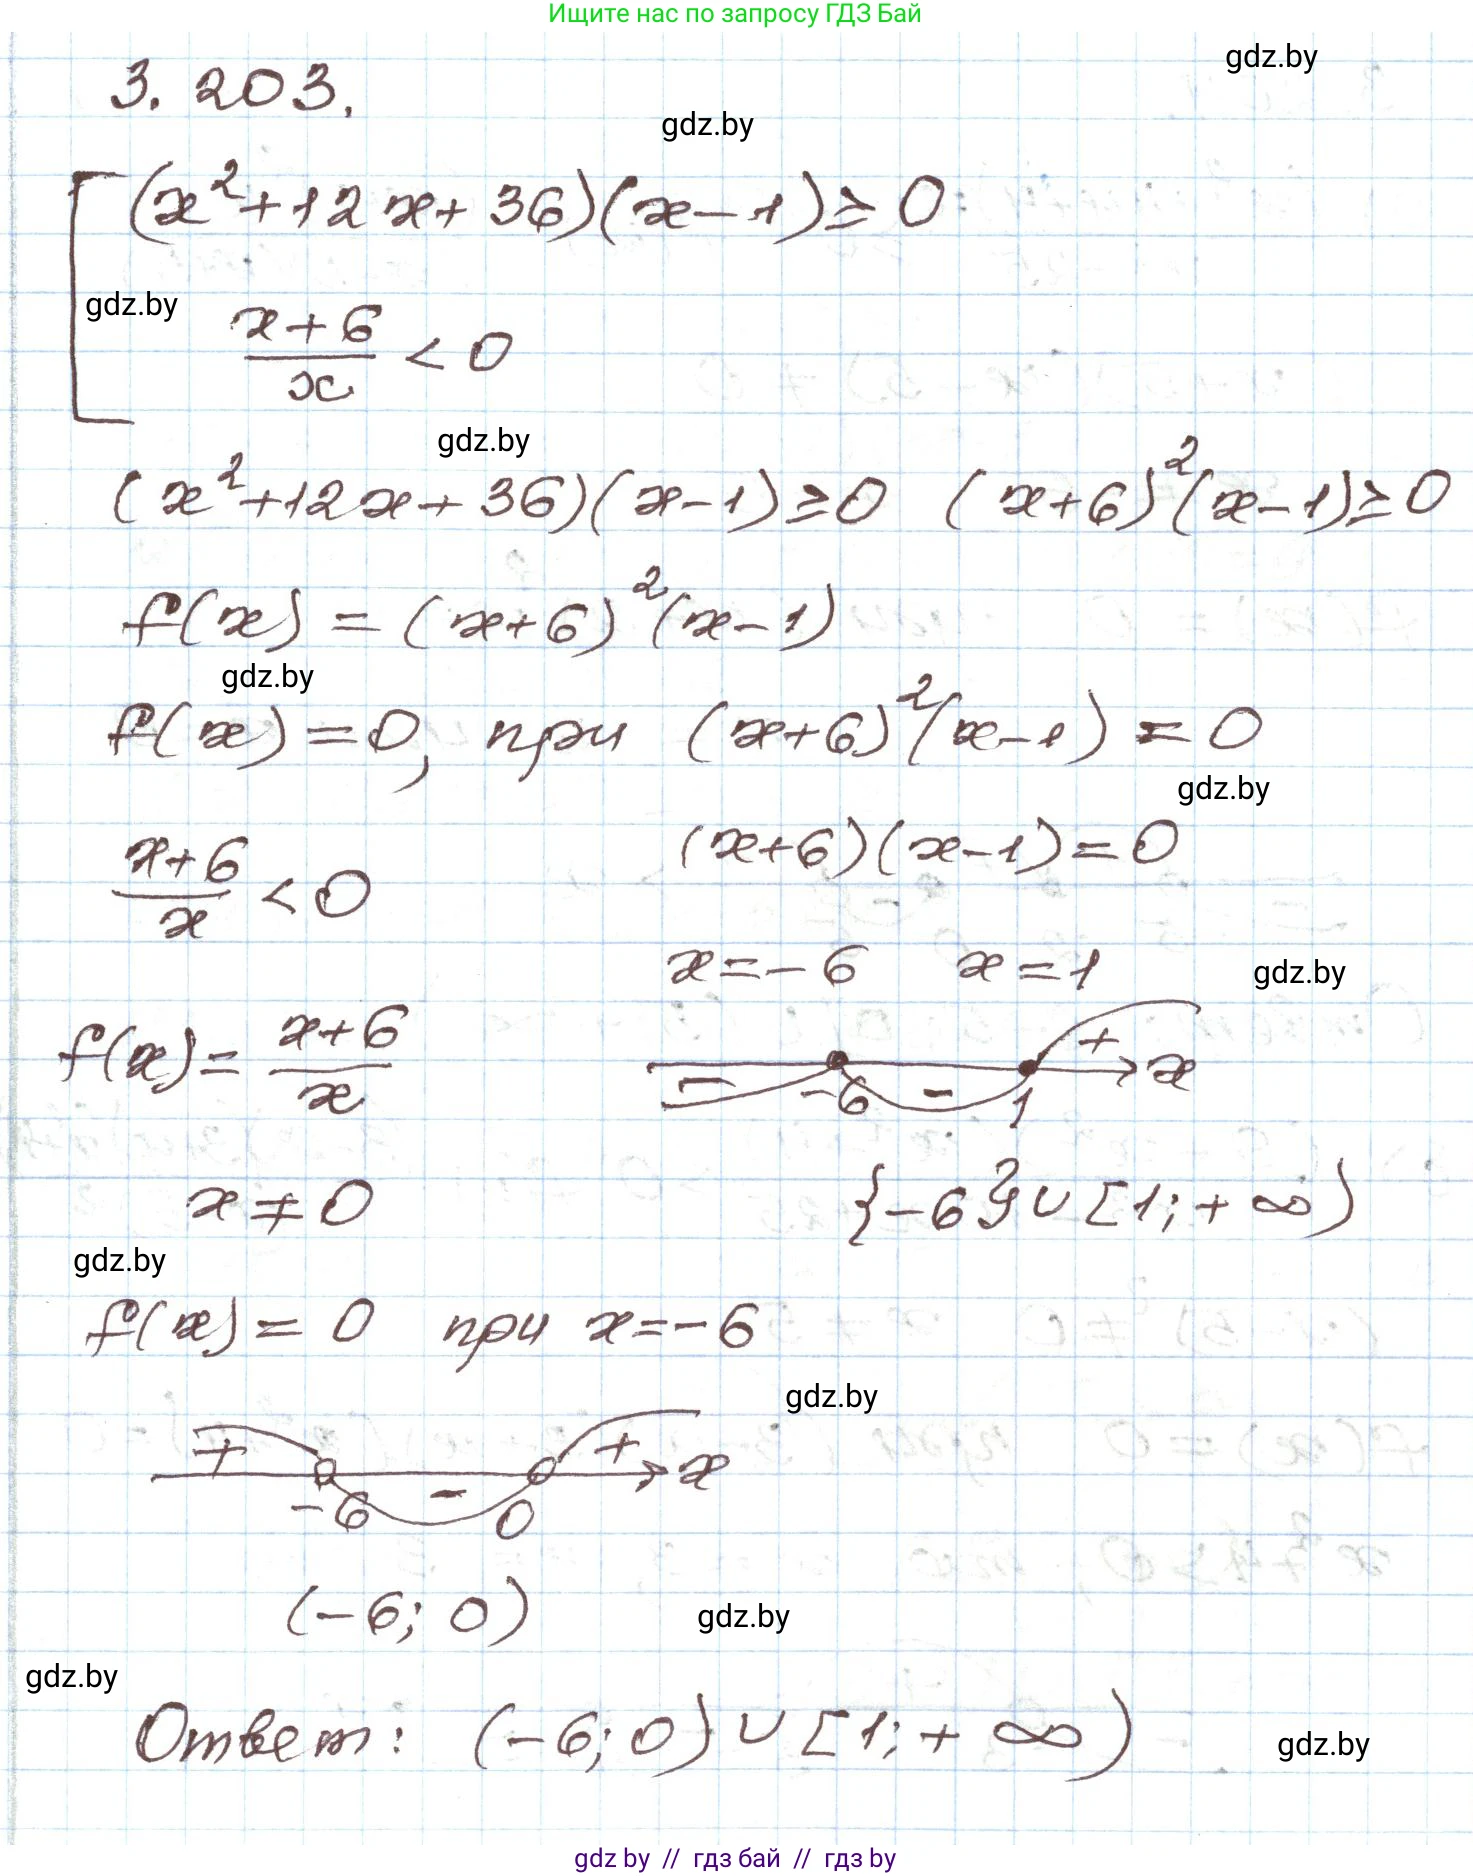 Ищите нас по запросу ГДЗ Бай
gdz.by
3. 203.
gdz.by
(x²+12x+36)(x-1)≥0
gdz.by
(x+6)/x < 0
gdz.by
(x²+12x+36)(x-1)≥0 (x+6)²(x-1)≥0
f(x) = (x+6)²(x-1)
gdz.by
f(x)=0, при (x+6)²(x-1)=0
gdz.by
(x+6)/x < 0 (x+6)(x-1)=0
x=-6 x=1
gdz.by
f(x)= (x+6)/x
- -6 - 1 + x
x≠0 {-6}∪[1;+∞)
gdz.by
f(x)= 0 при x=-6
gdz.by
+ -6 - 0 + x
(-6; 0)
gdz.by
gdz.by
Ответ: (-6; 0)∪[1;+∞)
gdz.by
gdz by // гдз бай // гдз by